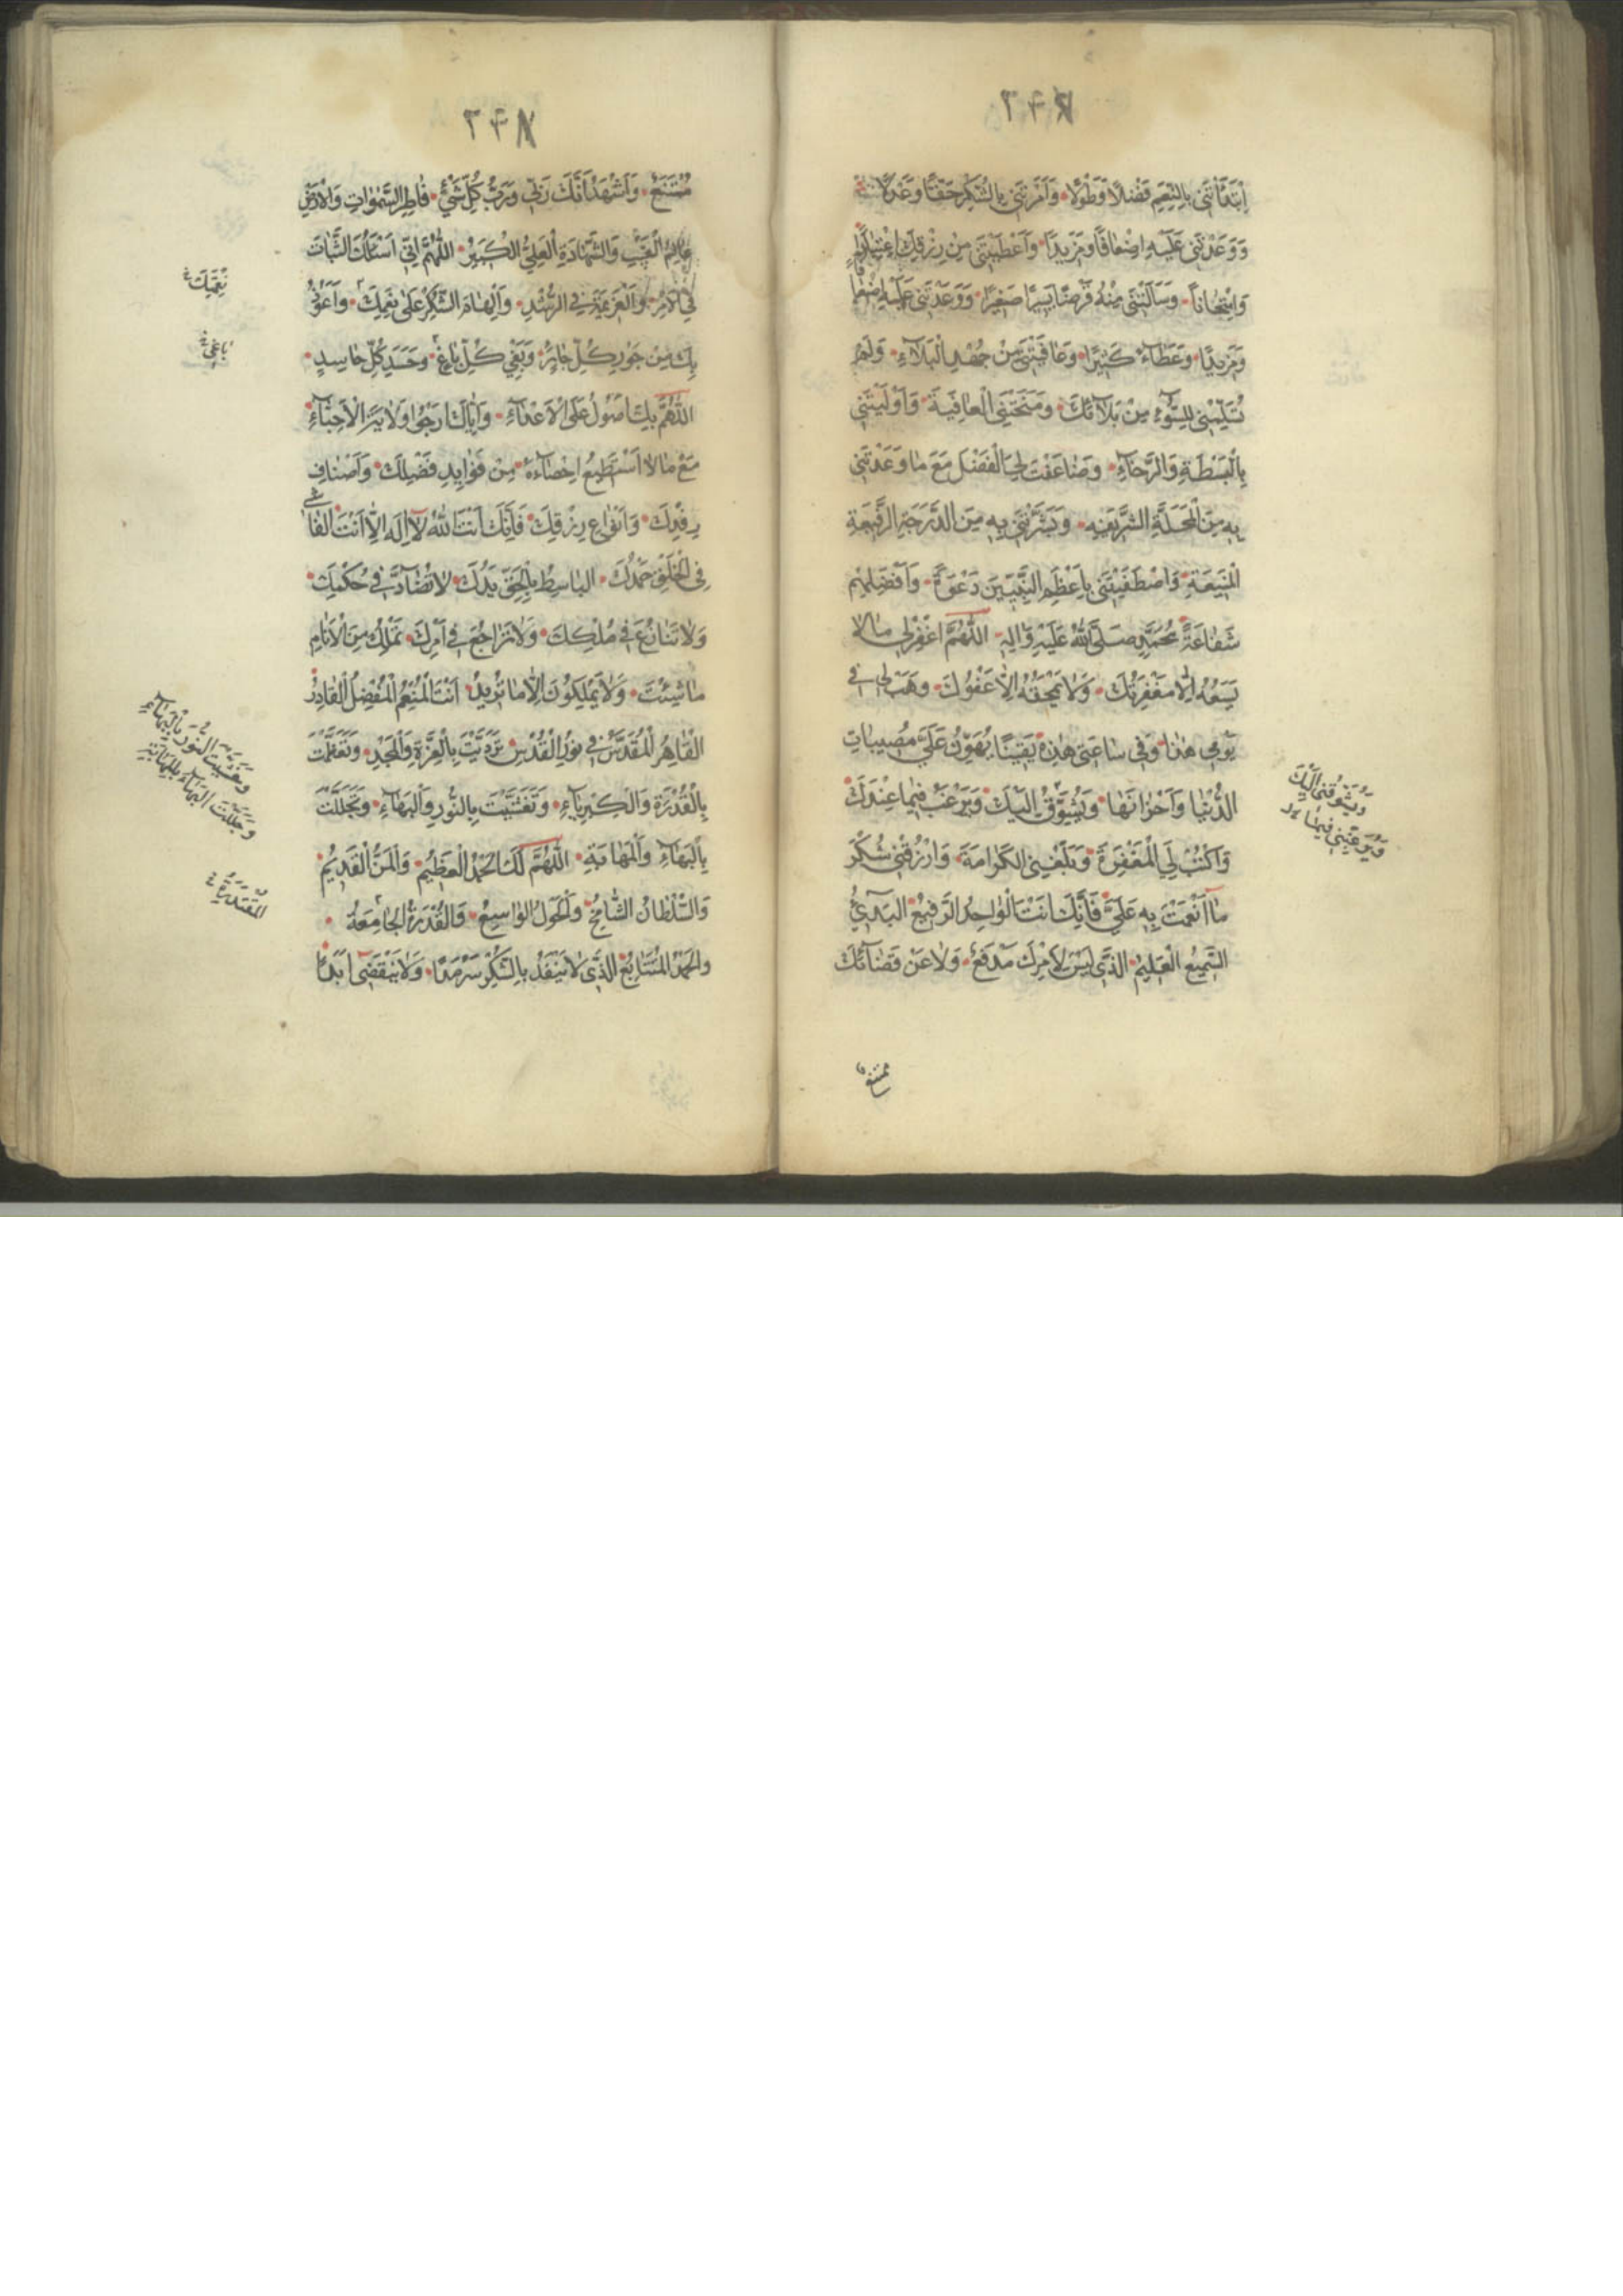 ٢٤٧
اِبْتَدَأْتَنِى بِالنِّعَمِ فَضْلًا وَطَوْلًا وَاَمَرْتَنِى بِالشُّكْرِ حَقًّا وَعَدْلًا
وَوَعَدْتَنِى عَلَيْهِ اَضْعَافًا وَمَزِيدًا وَاَعْطَيْتَنِى مِنْ رِزْقِكَ اِعْتِبَارًا
وَامْتِحَانًا وَسَاَلْتَنِى مِنْهُ قَرْضًا يَسِيرًا صَغِيرًا وَوَعَدْتَنِى عَلَيْهِ اَضْعَافًا
وَمَزِيدًا وَعَطَاءً كَثِيرًا وَعَافَيْتَنِى مِنْ جُهْدِ الْبَلَاءِ وَلَمْ
تُسَلِّمْنِى لِلسُّوءِ مِنْ بَلَائِكَ وَمَنَحْتَنِى الْعَافِيَةَ وَاَوْلَيْتَنِى
بِالْبَسْطَةِ وَالرَّخَاءِ وَضَاعَفْتَ لِىَ الْفَضْلَ مَعَ مَا وَعَدْتَنِى
بِهِ مِنَ الْمَحَلَّةِ الشَّرِيفَةِ وَبَشَّرْتَنِى بِهِ مِنَ الدَّرَجَةِ الرَّفِيعَةِ
الْمَنِيعَةِ وَاصْطَفَيْتَنِى بِاَعْظَمِ النَّبِيِّينَ دَعْوَةً وَاَفْضَلِهِمْ
شَفَاعَةً مُحَمَّدٍ صَلَّى اللهُ عَلَيْهِ وَالِهِ اَللّٰهُمَّ اغْفِرْ لِى مَا لَا
يَسَعُهُ اِلَّا مَغْفِرَتُكَ وَلَا يَمْحَقُهُ اِلَّا عَفْوُكَ وَهَبْ لِى فِى
يَوْمِى هٰذَا وَفِى سَاعَتِى هٰذِهِ يَقِينًا يُهَوِّنُ عَلَىَّ مُصِيبَاتِ
الدُّنْيَا وَاَحْزَانَهَا وَيُشَوِّقُ اِلَيْكَ وَيُرَغِّبُ فِيمَا عِنْدَكَ
وَيُشَوِّقُنِى اِلَيْكَ
وَيُرَغِّبُنِى فِيمَا
وَاكْتُبْ لِىَ الْمَغْفِرَةَ وَبَلِّغْنِى الْكَرَامَةَ وَارْزُقْنِى شُكْرَ
مَا اَنْعَمْتَ بِهِ عَلَىَّ فَاِنَّكَ اَنْتَ الْوَاحِدُ الرَّفِيعُ الْبَدِىءُ
السَّمِيعُ الْعَلِيمُ الَّذِى لَيْسَ لِاَمْرِكَ مَدْفَعٌ وَلَا عَنْ قَضَائِكَ
ممتنع
٢٤٨
مُمْتَنَعٌ وَاَشْهَدُ اَنَّكَ رَبِّى وَرَبُّ كُلِّ شَىْءٍ فَاطِرُ السَّمٰوَاتِ وَالْاَرْضِ
عَالِمُ الْغَيْبِ وَالشَّهَادَةِ الْعَلِىُّ الْكَبِيرُ اَللّٰهُمَّ اِنِّى اَسْئَلُكَ الثَّبَاتَ
فِى الْاَمْرِ وَالْعَزِيمَةَ فِى الرُّشْدِ وَاِلْهَامَ الشُّكْرِ عَلٰى نِعَمِكَ وَاَعُوذُ
نِعْمَتِكَ
بِكَ مِنْ جَوْرِ كُلِّ جَائِرٍ وَبَغْىِ كُلِّ بَاغٍ وَحَسَدِ كُلِّ حَاسِدٍ
بَاغِى
اَللّٰهُمَّ بِكَ اَصُولُ عَلَى الْاَعْدَاءِ وَاِيَّاكَ اَرْجُو وَلَايَةَ الْاَحِبَّاءِ
مَعَ مَا لَا اَسْتَطِيعُ اِحْصَاءَهُ مِنْ فَوَايِدِ فَضْلِكَ وَاَصْنَافِ
رِفْدِكَ وَاَنْوَاعِ رِزْقِكَ فَاِنَّكَ اَنْتَ اللهُ لَا اِلٰهَ اِلَّا اَنْتَ الْفَاشِى
فِى الْخَلْقِ حَمْدُكَ الْبَاسِطُ بِالْحَقِّ يَدُكَ لَا تُضَادُّ فِى حُكْمِكَ
وَلَا تُنَازَعُ فِى مُلْكِكَ وَلَا تُرَاجَعُ فِى اَمْرِكَ تَمْلِكُ مِنَ الْاَنَامِ
مَا شِئْتَ وَلَا يَمْلِكُونَ اِلَّا مَا تُرِيدُ اَنْتَ الْمُنْعِمُ الْمُفْضِلُ الْقَادِرُ
الْقَاهِرُ الْمُقَدَّسُ فِى نُورِ الْقُدْسِ تَرَدَّيْتَ بِالْعِزَّةِ وَالْمَجْدِ وَتَعَظَّمْتَ
بِالْقُدْرَةِ وَالْكِبْرِيَاءِ وَتَغَشَّيْتَ بِالنُّورِ وَالْبَهَاءِ وَتَجَلَّلْتَ
وَتَغَشَّيْتَ النُّورَ بِالْبَهَاءِ
وَتَجَلَّلْتَ الْبَهَاءَ بِالْمَهَابَةِ
بِالْبَهَاءِ وَالْمَهَابَةِ اَللّٰهُمَّ لَكَ الْحَمْدُ الْعَظِيمُ وَالْمَنُّ الْقَدِيمُ
وَالسُّلْطَانُ الشَّامِخُ وَالْحَوْلُ الْوَاسِعُ وَالْقُدْرَةُ الْجَامِعَةُ
الْمُقْتَدِرَةُ
وَالْحَمْدُ الْمُتَتَابِعُ الَّذِى لَا يَنْفَدُ بِالشُّكْرِ سَرْمَدًا وَلَا يَنْقَضِى اَبَدًا